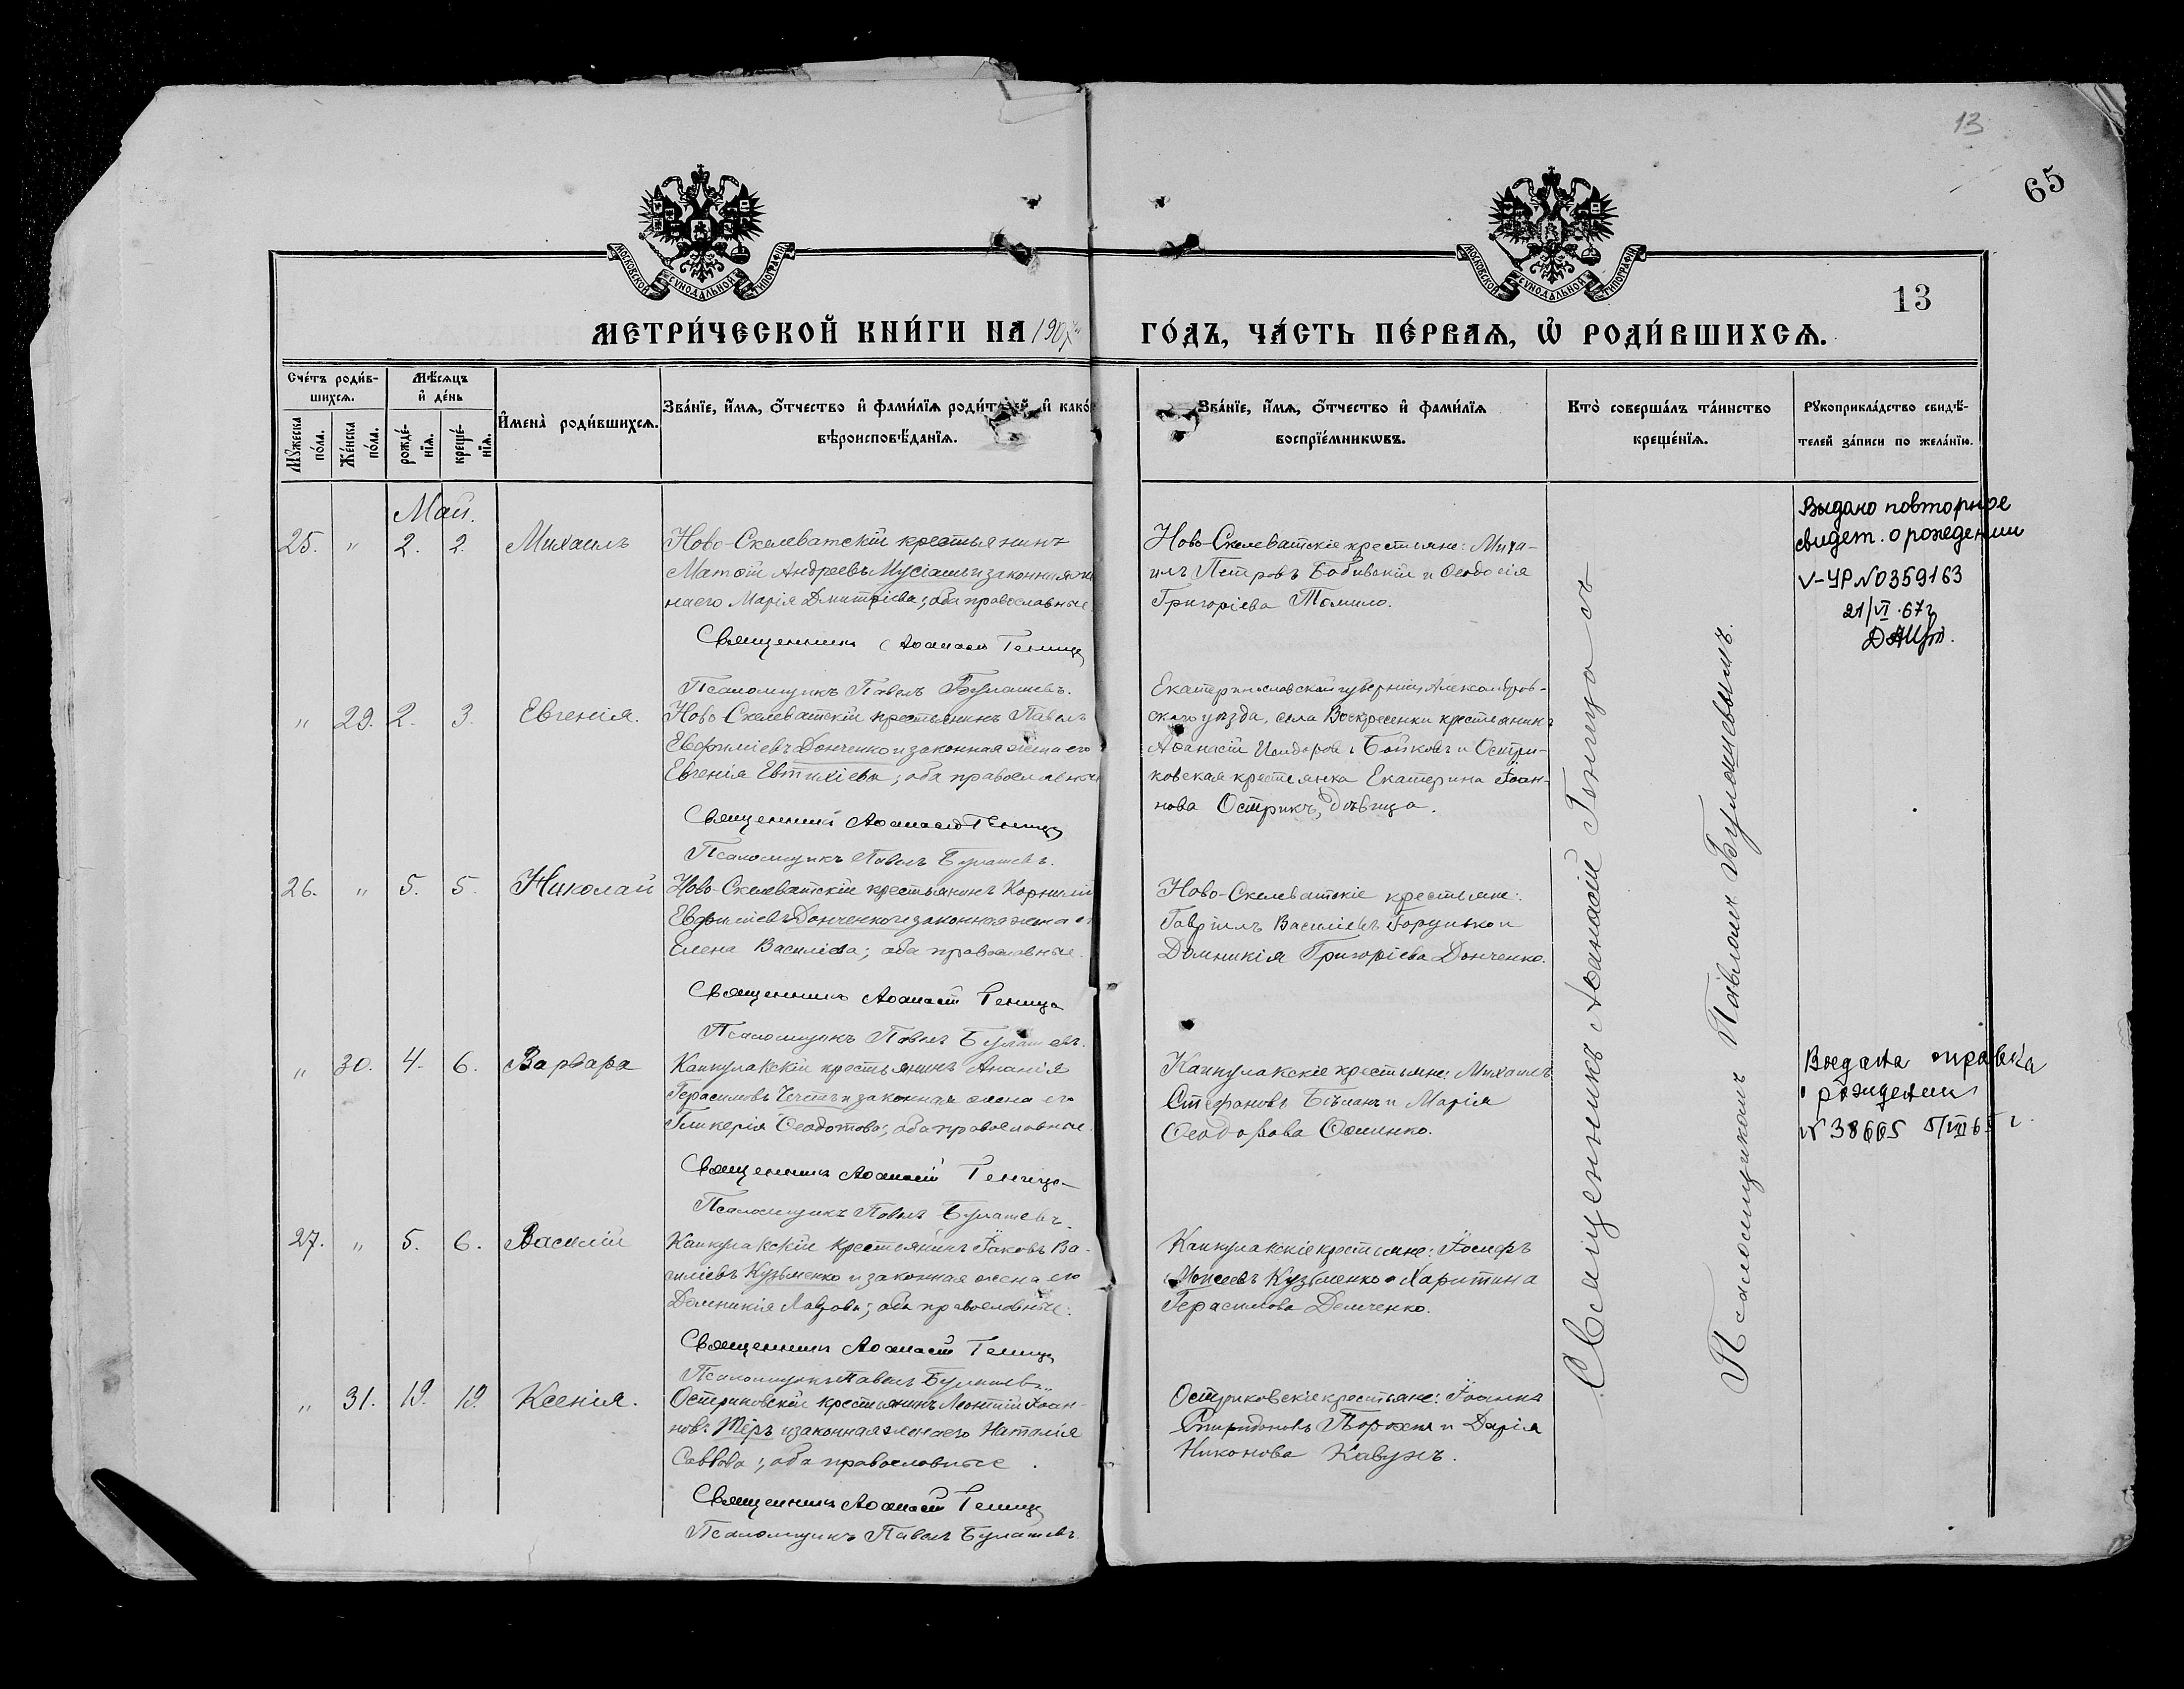 13
65
МОСКОВСКОЙ СѴНОДАЛЬНОЙ ТИПОГРАФІИ
МОСКОВСКОЙ СѴНОДАЛЬНОЙ ТИПОГРАФІИ
13
МЕТРИ́ЧЕСКОЙ КНИ́ГИ НА 1907 ГО́ДЪ, ЧА́СТЬ ПЕ́РВАѦ, Ѡ҆ РОДИ́ВШИХСѦ.
Сче́тъ роди́в-
шихсѧ.
Мѣ́сѧцъ
и҆ де́нь
Мꙋ́жеска
по́ла.
Же́нска
по́ла.
рожде́-
нїѧ.
креще́-
нїѧ.
И҆мена̀ роди́вшихсѧ.
Зва́нїе, и҆́мѧ, ѻ҆́тчество и҆ фами́лїѧ роди́телей, и҆ како́
вѣроисповѣ́данїѧ.
Зва́нїе, и҆́мѧ, ѻ҆́тчество и҆ фами́лїѧ
воспрїе́мникѡвъ.
Кто̀ соверша́лъ та́инство
креще́нїѧ.
Рꙋкоприкла́дство свидѣ́-
телей за́писи по жела́нїю.
Май.
25. " 2. 2. Михаилъ
Ново-Скелеватскій крестьянинъ
Матѳій Андреевъ Мусіашъ и законная же
на его Марія Димитріева; оба православные
Священникъ Аѳанасій Геница
Псаломщикъ Павелъ Булашевъ.
Ново-Скелеватскіе крестьяне: Миха-
илъ Петровъ Бабивскій и Ѳеодосія
Григоріева Томило.
Выдано повторное
свидет. о рождении
V-УР №0359163
21/VI.67г
" 29. 2. 3. Евгенія.
Ново-Скелеватскій крестьянинъ Павелъ
Евфиміевъ Донченко и законная жена его
Евгенія Евтихіева; оба православные
Священникъ Аѳанасій Геница
Псаломщикъ Павелъ Булашевъ.
Екатеринославской губерніи Александров-
скаго уѣзда, села Воскресенки крестьянинъ
Аѳанасій Бойковъ и Остри-
ковская крестьянка Екатерина Іоан-
нова Острикъ, дѣвица.
26. " 5. 5. Николай
Ново-Скелеватскій крестьянинъ Корнилій
Евфиміевъ Донченко и законная жена е
Елена Василіева; оба православные.
Священникъ Аѳанасій Геница
Псаломщикъ Павелъ Булашевъ.
Ново-Скелеватскіе крестьяне:
Гавріилъ Василіевъ Горунько и
Домникія Григоріева Донченко.
" 30. 4. 6. Варвара
Канкулакскій крестьянинъ Ананія
Герасимовъ и законная жена его
Гликерія Ѳеодотова; оба православные.
Священникъ Аѳанасій Геница
Псаломщикъ Павелъ Булашевъ.
Канкулакскіе крестьяне: Михаилъ
Стефановъ и Марія
Ѳеодорова
Выдана справка
о рождении
№ 38665
27. " 5. 6. Василій
Канкулакскій крестьянинъ Іаковъ Ва-
силіевъ Кузьменко и законная жена его
Домникія Лаврова; оба православные.
Священникъ Аѳанасій Геница
Псаломщикъ Павелъ Булашевъ.
Канкулакскіе крестьяне: Іосифъ
Моисеевъ Кузьменко и Харитина
Герасимова Демченко.
" 31. 19. 19. Ксенія.
Остриковскій крестьянинъ Леонтій Іоан-
новъ Тёръ и законная жена его Наталія
Саввова; оба православные.
Священникъ Аѳанасій Геница
Псаломщикъ Павелъ Булашевъ.
Остриковскіе крестьяне: Іоаннъ
Спиридоновъ и Дарія
Никонова Кавунъ.
Священникъ Аѳанасій Геница съ
Псаломщикомъ Павломъ Булашевымъ.